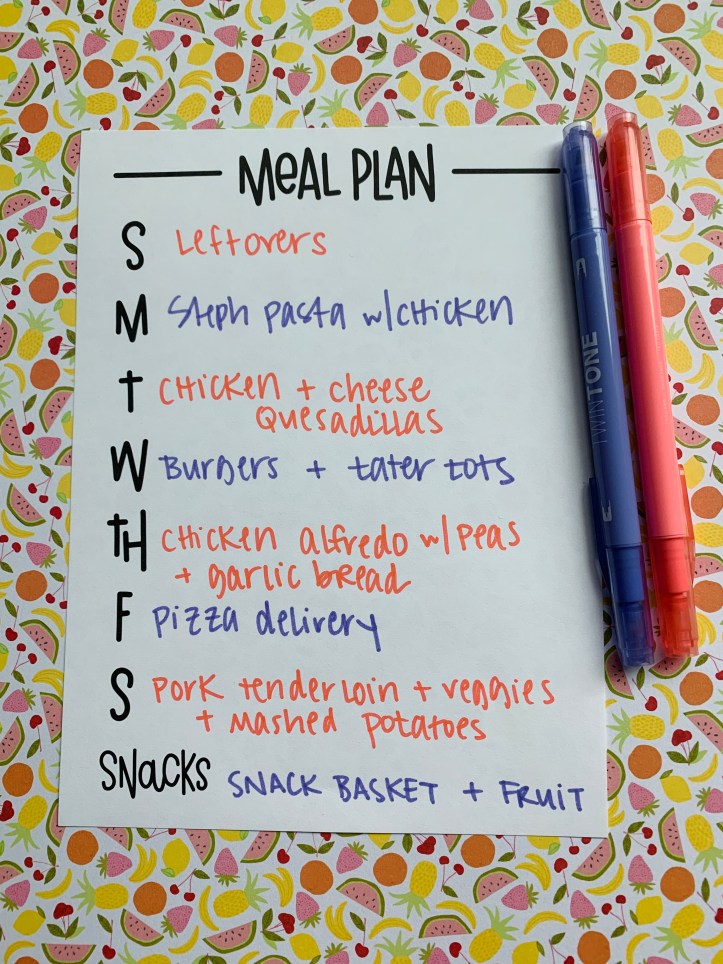 MEAL PLAN
S Leftovers
M Steph pasta w/chicken
T chicken + cheese
Quesadillas
W Burgers + tater tots
TH chicken alfredo w/ peas
+ garlic bread
F Pizza delivery
S Pork tenderloin + veggies
+ mashed potatoes
SNACKS SNACK BASKET + FRUIT
TWINTONE